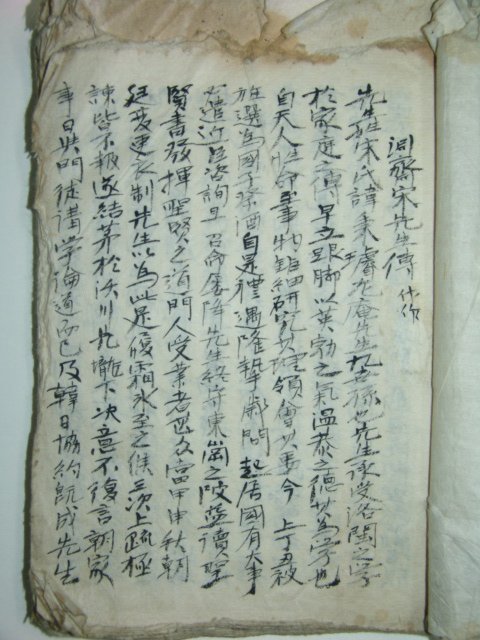 淵齋宋先生傳 代作
先生姓宋氏諱秉璿尤庵先生九世孫也先生承受洛閩之學
於家庭之傳早立跟脚以英勃之氣溫恭之德其爲學也
自天人性命至事物鉅細研究其理領會以焉今 上丁丑被
旌選爲國子祭酒自是禮遇隆摯歲問起居國有大事
召命屢降先生終守東岡之陂益讀聖
賢書發揮聖賢之道門人受業者甚衆當甲申秋朝
廷變更衣制先生以爲此是履霜氷至之候三次上疏極
諫皆不報遂結茅於沃川九龍下決意不復言朝家
事日與門徒講學論道而已及韓日協約旣成先生